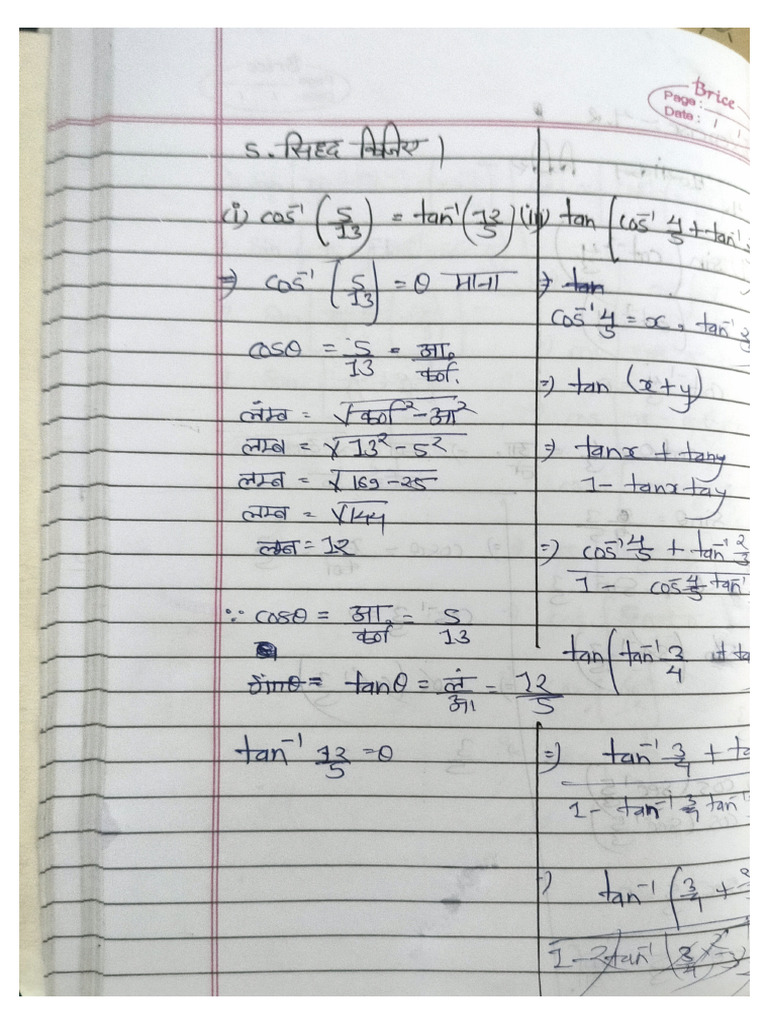 Brice
Page :
Date :
5. सिद्द किजिए।
(i) cos⁻¹ (5/13) = tan⁻¹ (12/5)
⇒ cos⁻¹ (5/13) = θ माना
cosθ = 5/13 = आ./कर्ण.
लंम्ब = √कर्ण² - आ²
लम्ब = √13² - 5²
लम्ब = √169 - 25
लम्ब = √144
लम्ब = 12
∵ cosθ = आ./कर्ण = 5/13
tanθ = लं/आ = 12/5
tan⁻¹ 12/5 = θ
tan [cos⁻¹ 4/5 + tan⁻¹
⇒ tan
cos⁻¹ 4/5 = x, tan⁻¹
⇒) tan (x+y)
⇒) tanx + tany / 1 - tanx tay
⇒) cos⁻¹ 4/5 + tan⁻¹ 2/3 / 1 - cos⁻¹ 4/5 tan⁻¹
tan (tan⁻¹ 3/4
⇒) tan⁻¹ 3/4 + ta / 1 - tan⁻¹ 3/4 tan⁻¹
tan⁻¹ (3/4 +